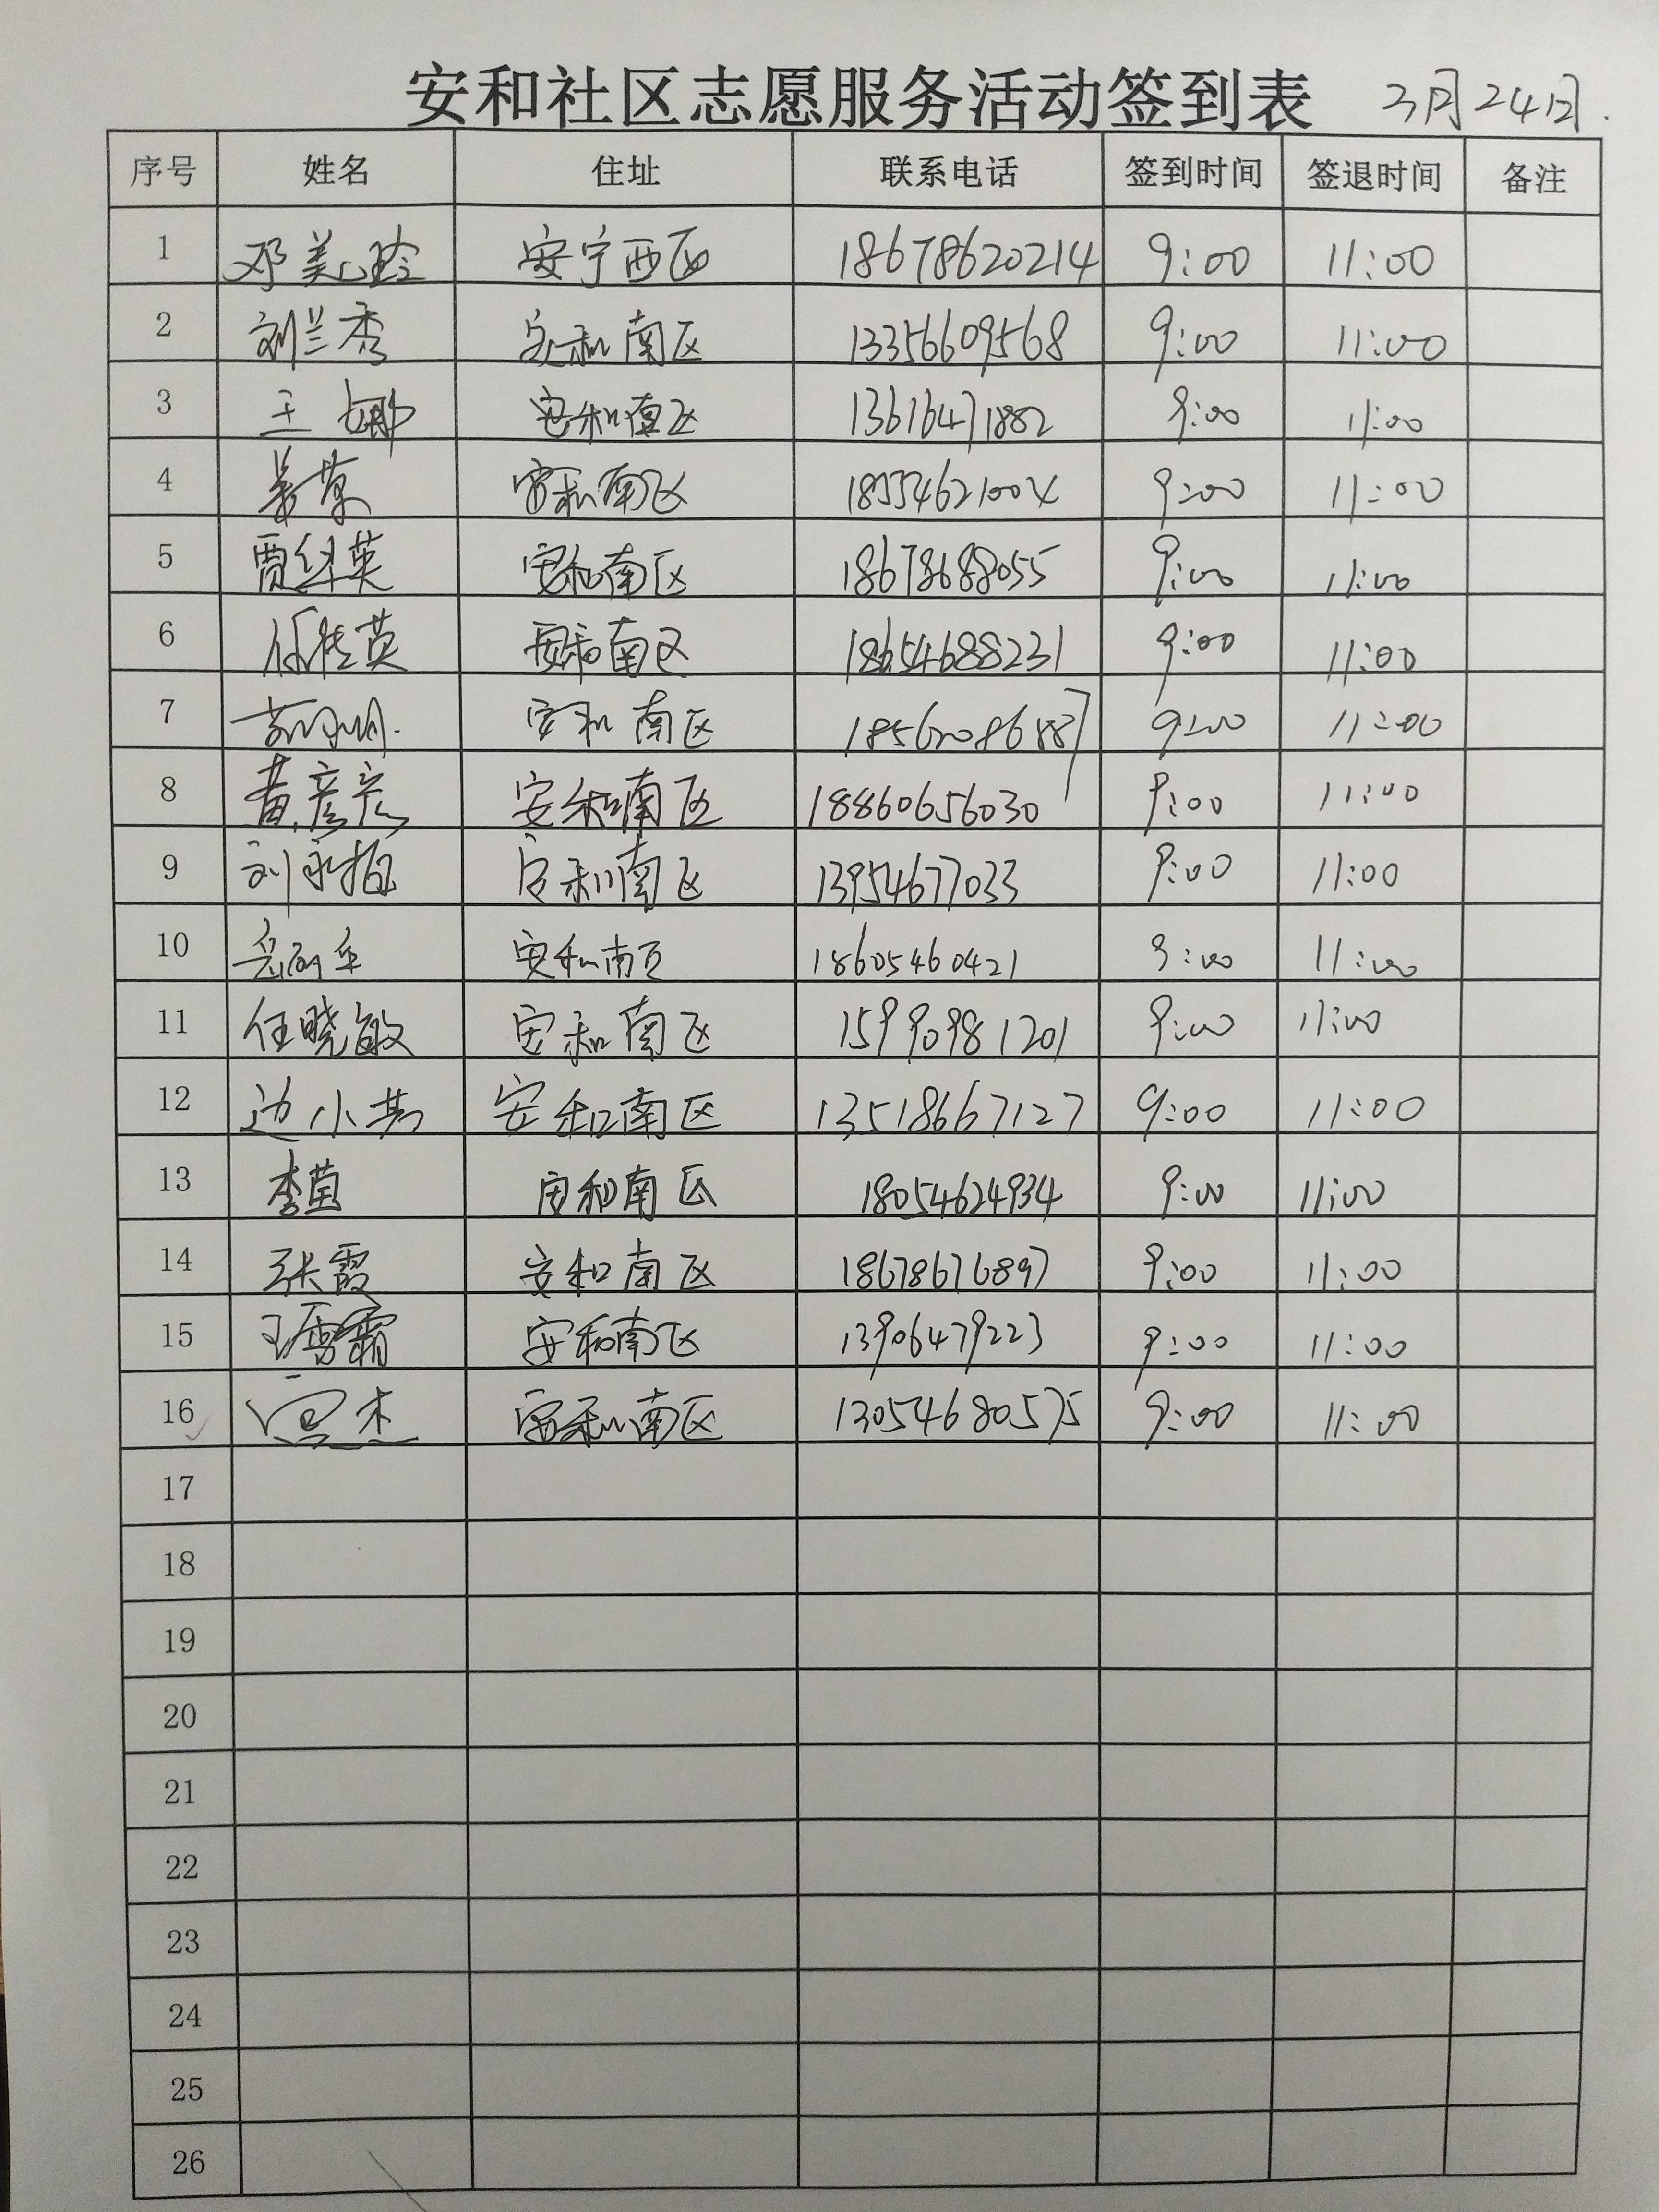 安和社区志愿服务活动签到表 3月24日.
序号 姓名 住址 联系电话 签到时间 签退时间 备注
1 邓美玲 安宁西区 18678620214 9:00 11:00
2 刘兰秀 安和南区 13356609568 9:00 11:00
3 王娜 安和南区 13616471882 9:00 11:00
4 安和南区 18554621004 9:00 11:00
5 贾红英 安和南区 18678688055 9:00 11:00
6 任桂英 安和南区 18654688231 9:00 11:00
7 安和南区 18562086887 9:00 11:00
8 黄彦彦 安和南区 18860656030 9:00 11:00
9 刘永梅 安和南区 13954677033 9:00 11:00
10 安和南区 18605460421 9:00 11:00
11 任晓敏 安和南区 15990981201 9:00 11:00
12 边小 安和南区 13518667127 9:00 11:00
13 李苗 安和南区 18054624934 9:00 11:00
14 张霞 安和南区 18678676897 9:00 11:00
15 王雪霜 安和南区 13906479223 9:00 11:00
16 杰 安和南区 13054680575 9:00 11:00
17
18
19
20
21
22
23
24
25
26